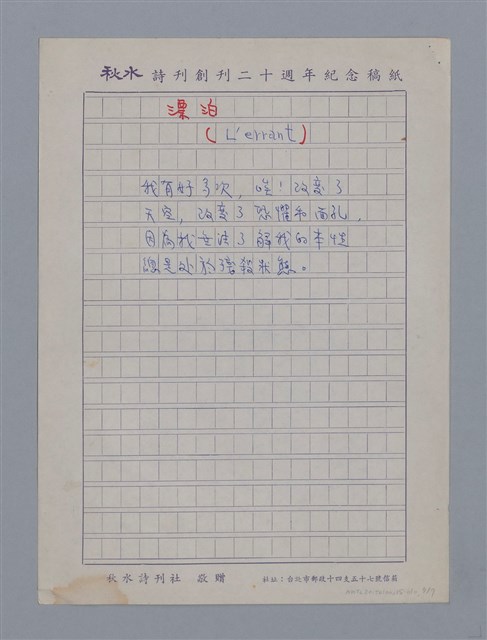 秋水 詩刊創刊二十週年紀念稿紙
漂泊
(L'errant)
我有好多次，唉！改變了
天空，改變了恐懼和面孔，
因為我無法了解我的本性
總是處於殘殺狀態。
秋水詩刊社 敬贈
社址：台北市郵政十四支五十七號信箱